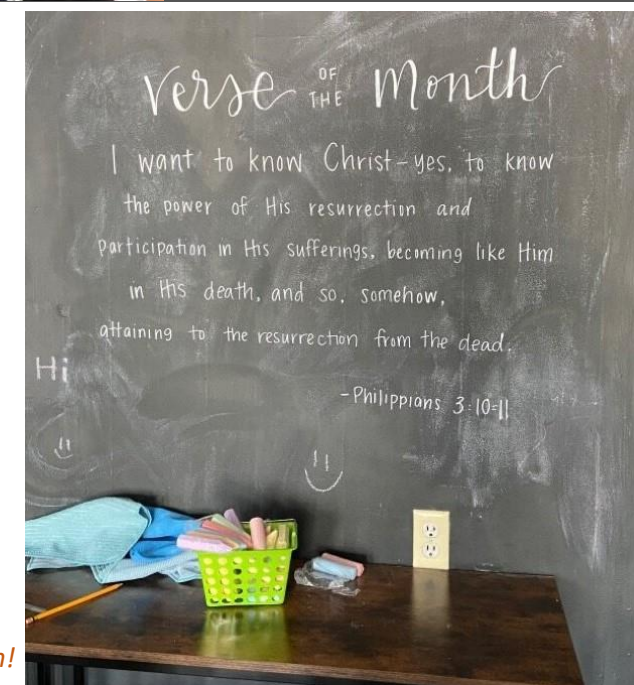 Verse OF THE Month
I want to know Christ – yes, to know
the power of His resurrection and
participation in His sufferings, becoming like Him
in His death, and so, somehow,
attaining to the resurrection from the dead.
- Philippians 3:10-11
Hi
!